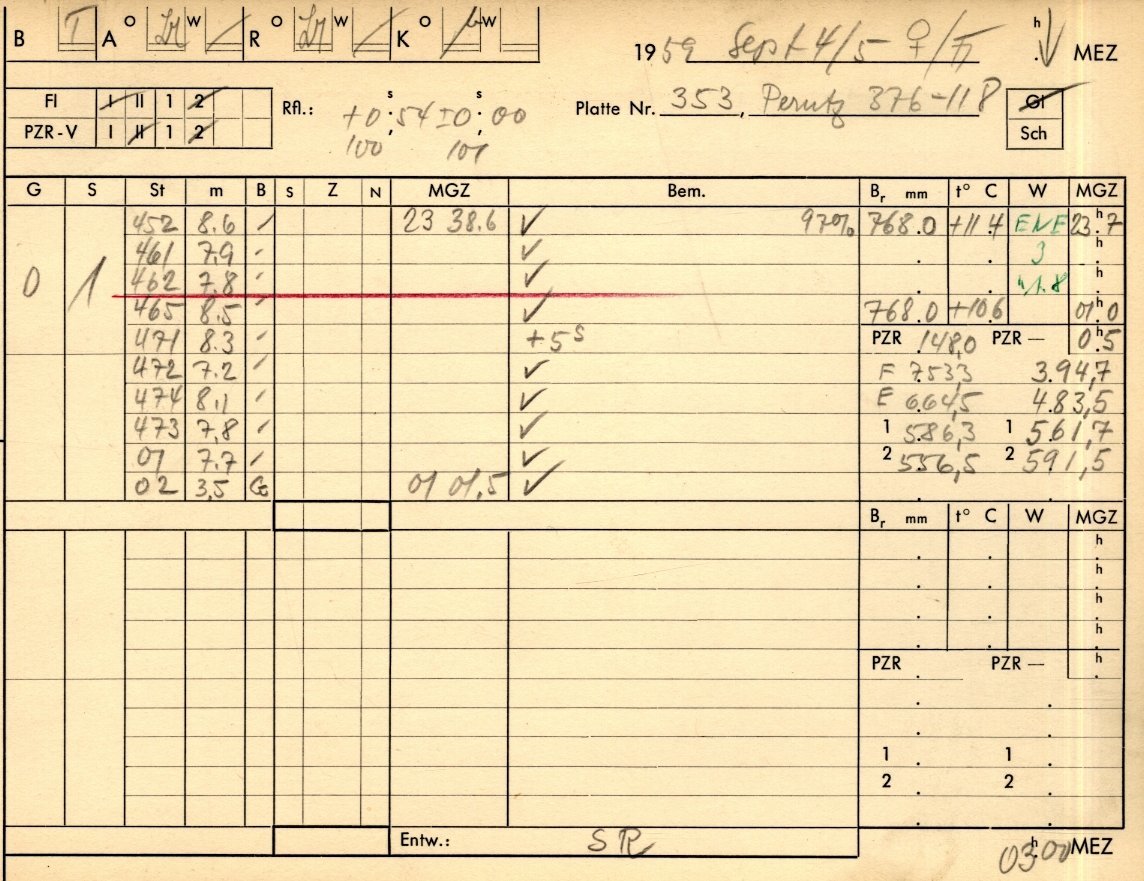 B T A o w R o w K o w 1959 Sept 4/5 ♀/♄ h MEZ
Fl I II 1 2 Rfl.: +0s.54 ±0s.00 Platte Nr. 353, Perutz 376-118 Gl
PZR-V I II 1 2 100 101 Sch
G S St m B S Z N MGZ Bem. Br mm t° C W MGZ
452 8.6 23 38.6 ✓ 97% 768.0 +11.4 ENE 23h.7
461 7.9 ✓ 3 h
0 1 462 7.8 ✓ 1.8 h
465 8.5 ✓ 768.0 +10.6 01h.0
471 8.3 +5s PZR 148,0 PZR — 0h.5
472 7.2 ✓ F 753,3 3.94,7
474 8.1 ✓ E 664,5 4.83,5
473 7,8 ✓ 1 586,3 1 561,7
01 7.7 ✓ 2 556,5 2 591,5
02 3,5 01 01,5 ✓
Br mm t° C W MGZ
h
h
h
h
PZR PZR — h
1 1
2 2
Entw.: SR 03h00 MEZ